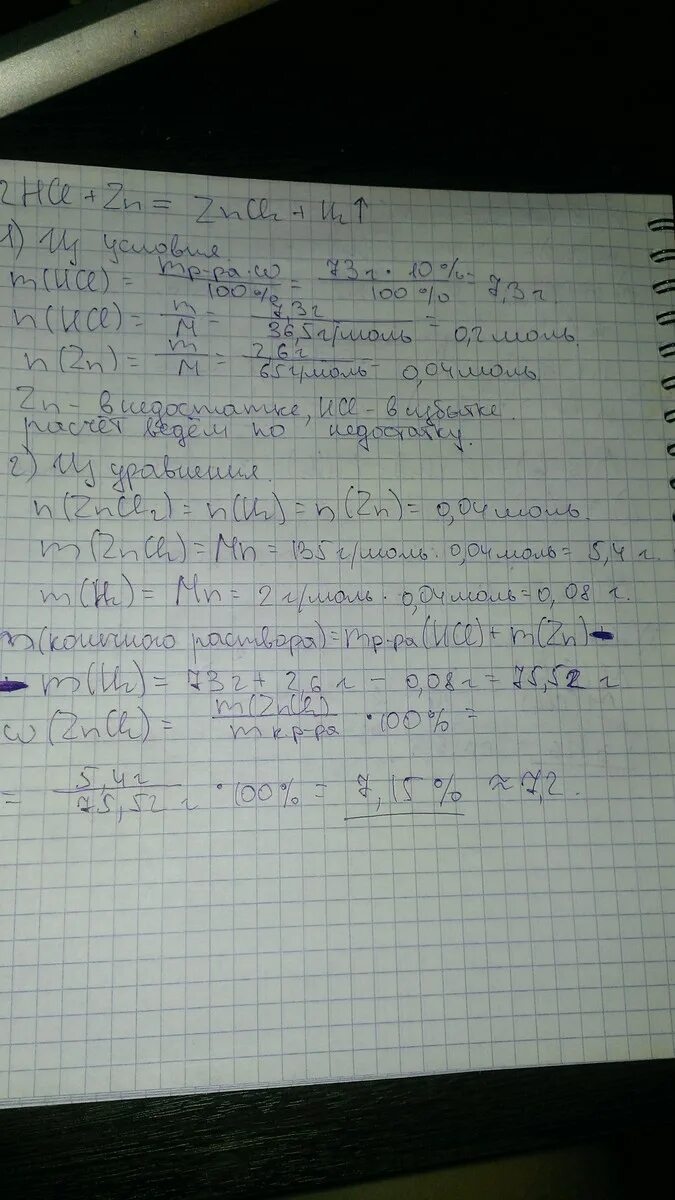 2HCl + Zn = ZnCl₂ + H₂↑
1) Из условия
m(HCl) = mр-ра·ω / 100% = 73 г · 10% / 100% = 7,3 г.
n(HCl) = m / M = 7,3 г / 36,5 г/моль = 0,2 моль.
n(Zn) = m / M = 2,6 г / 65 г/моль = 0,04 моль
Zn - в недостатке, HCl - в избытке.
расчёт ведём по недостатку.
2) Из уравнения.
n(ZnCl₂) = n(H₂) = n(Zn) = 0,04 моль.
m(ZnCl₂) = Mn = 135 г/моль · 0,04 моль = 5,4 г.
m(H₂) = Mn = 2 г/моль · 0,04 моль = 0,08 г.
m(конечного раствора) = mр-ра(HCl) + m(Zn) -
- m(H₂) = 73 г + 2,6 г - 0,08 г = 75,52 г
ω(ZnCl₂) = m(ZnCl₂) / m кр-ра · 100% =
= 5,4 г / 75,52 г · 100% = 7,15% ≈ 7,2.